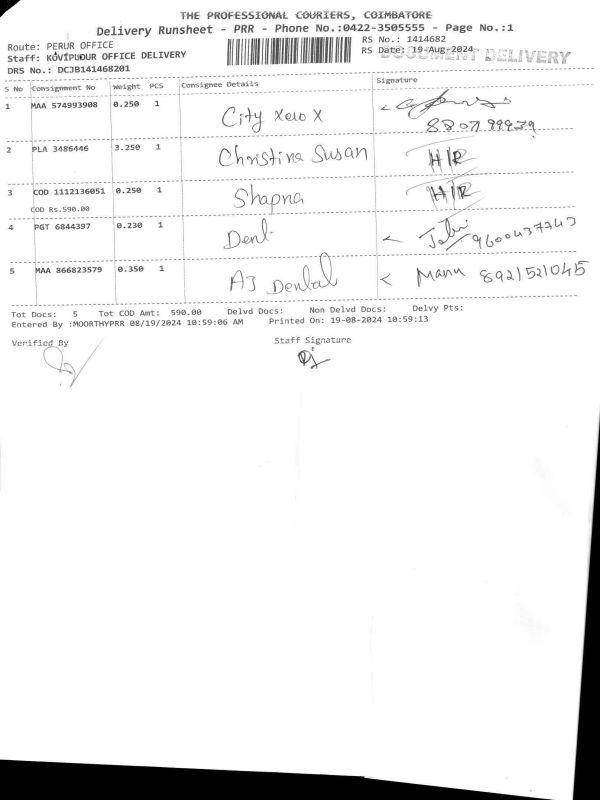 THE PROFESSIONAL COURIERS, COIMBATORE
Delivery Runsheet - PRR - Phone No.:0422-3505555 - Page No.:1
Route: PERUR OFFICE
RS No.: 1414682
Staff: KOVIPUDUR OFFICE DELIVERY
RS Date: 19-Aug-2024
DOCUMENT DELIVERY
DRS No.: DCJB141468201
S No Consignment No Weight PCS Consignee Details Signature
1 MAA 574993908 0.250 1 City Xerox
2 PLA 3486446 3.250 1 Christina Susan H/R
3 COD 1112136051 0.250 1 Shapna H/R
COD Rs.590.00
4 PGT 6844397 0.230 1 Dent 9600437743
5 MAA 866823579 0.350 1 AJ Dental Manu 8921521045
Tot Docs: 5 Tot COD Amt: 590.00 Delvd Docs: Non Delvd Docs: Delvy Pts:
Entered By :MOORTHYPRR 08/19/2024 10:59:06 AM Printed On: 19-08-2024 10:59:13
Verified By Staff Signature